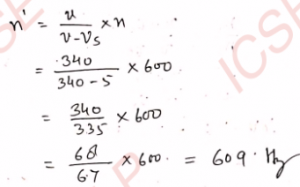 n' = v / (v - Vs) × n
= 340 / (340 - 5) × 600
= 340 / 335 × 600
= 68 / 67 × 600 = 609 Hz
ICSE